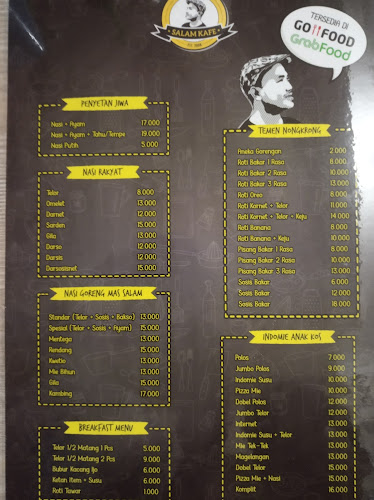 SALAM KAFE
TERSEDIA DI
GO FOOD
GrabFood
PENYETAN JIWA
Nasi + Ayam 17.000
Nasi + Ayam + Tahu/Tempe 19.000
Nasi Putih 5.000
NASI RAKYAT
Telor 8.000
Omelet 13.000
Darnet 12.000
Sarden 15.000
Gila 13.000
Darso 12.000
Darsis 12.000
Darsosisnet 15.000
NASI GORENG MAS SALAM
Standar (Telor + Sosis + Bakso) 13.000
Spesial (Telor + Sosis + Ayam) 15.000
Mentega 13.000
Rendang 15.000
Kwetie 13.000
Mie Bihun 13.000
Gila 15.000
Kambing 17.000
BREAKFAST MENU
Telor 1/2 Matang 1 Pcs 5.000
Telor 1/2 Matang 2 Pcs 9.000
Bubur Kacang Ijo 6.000
Ketan Item + Susu 6.000
Roti Tawar 1.000
TEMEN NONGKRONG
Aneka Gorengan 2.000
Roti Bakar 1 Rasa 8.000
Roti Bakar 2 Rasa 10.000
Roti Bakar 3 Rasa 13.000
Roti Oreo 8.000
Roti Kornet + Telor 11.000
Roti Kornet + Telor + Keju 14.000
Roti Banana 8.000
Roti Banana + Keju 10.000
Pisang Bakar 1 Rasa 8.000
Pisang Bakar 2 Rasa 10.000
Pisang Bakar 3 Rasa 13.000
Sosis Bakar 6.000
Sosis Bakar 12.000
Sosis Bakar 18.000
INDOMIE ANAK KOS
Polos 7.000
Jumbo Polos 9.000
Indomie Susu 10.000
Pizza Mie 10.000
Dobel Polos 12.000
Jumbo Telor 12.000
Internet 13.000
Indomie Susu + Telor 13.000
Mie Tek-Tek 13.000
Magelangan 13.000
Dobel Telor 15.000
Pizza Mie + Nasi 15.000
Komplit 16.000